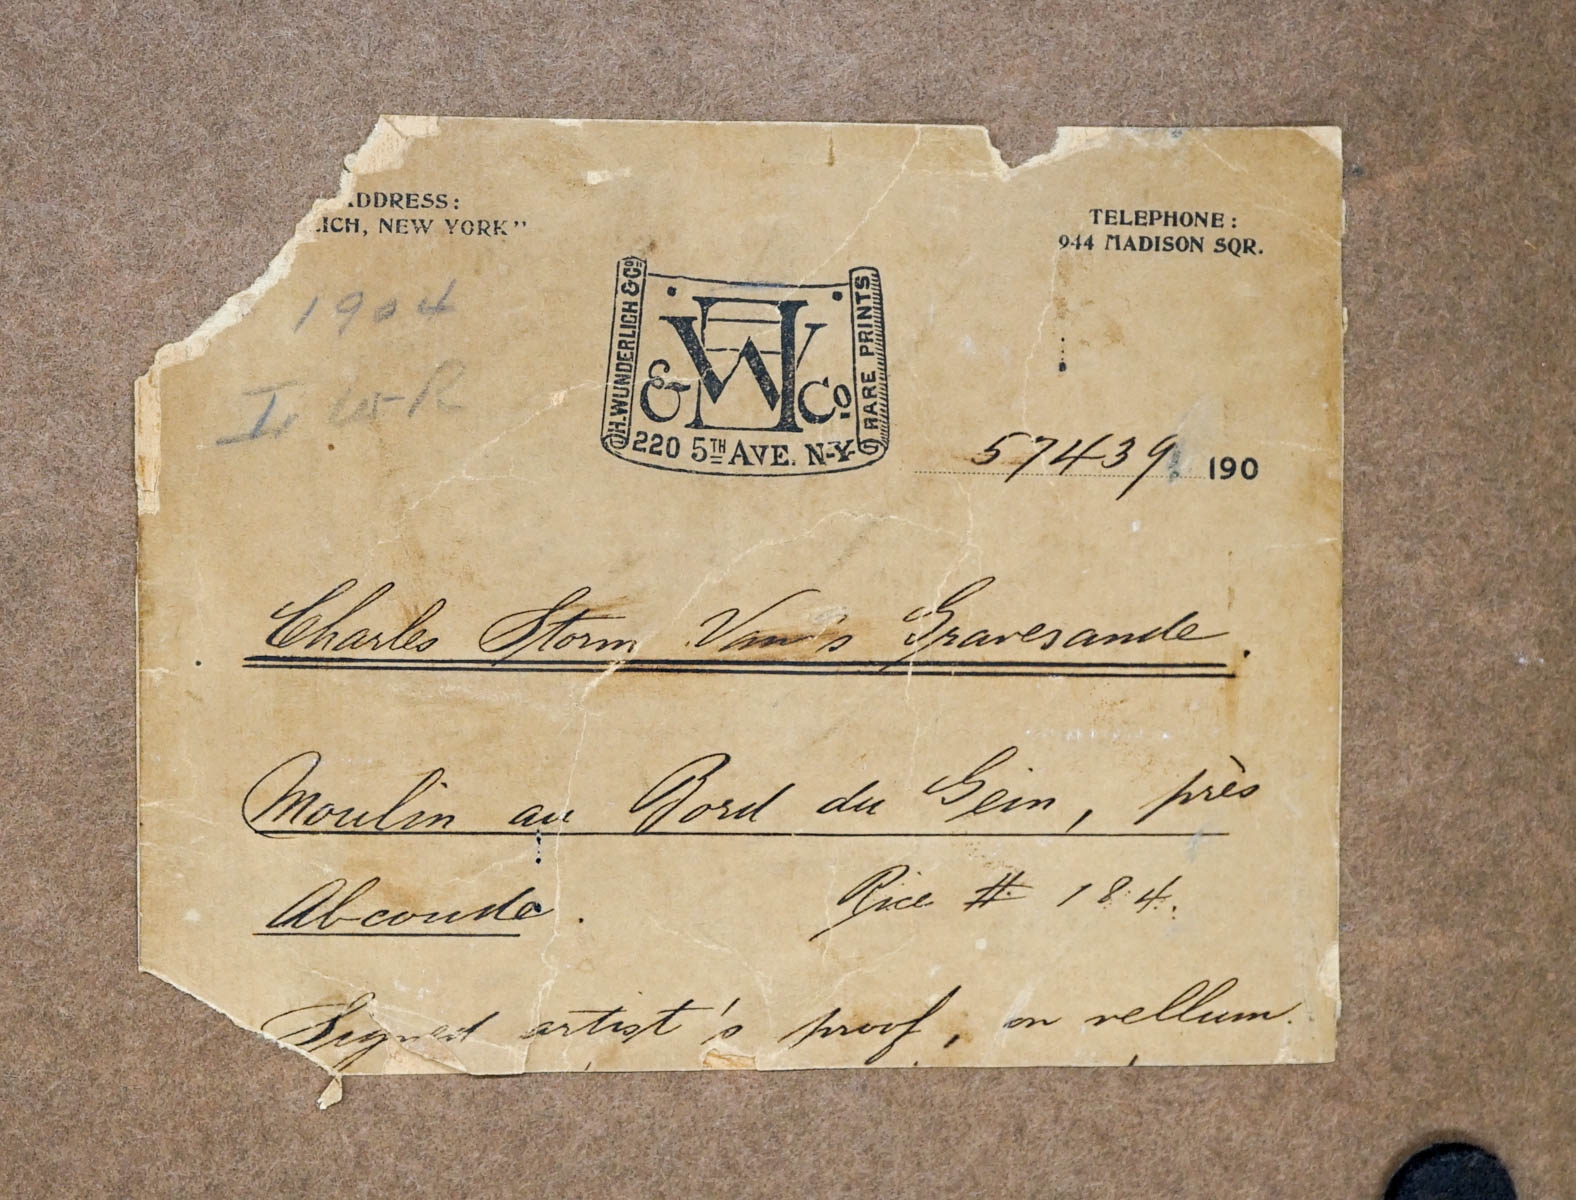 ADDRESS:
LICH, NEW YORK"
TELEPHONE:
944 MADISON SQR.
1904
H. WUNDERLICH & Co.
RARE PRINTS
HW & Co
220 5TH AVE. N-Y-
57439 190
Charles Storm Van's Gravesande.
Moulin au Bord du Gein, près
Abcoude. Rice # 184.
Signed artist's proof, on vellum.